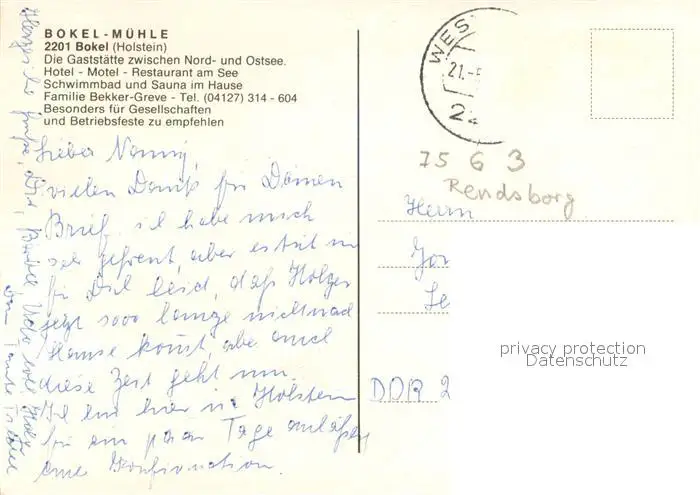 BOKEL - MÜHLE
2201 Bokel (Holstein)
Die Gaststätte zwischen Nord- und Ostsee.
Hotel - Motel - Restaurant am See
Schwimmbad und Sauna im Hause
Familie Bekker-Greve - Tel. (04127) 314 - 604
Besonders für Gesellschaften
und Betriebsfeste zu empfehlen
Lieber Nonny,
vielen Dank für Deinen
Brief. ich habe mich
sehr gefreut, aber es tut mir
für Dich leid, daß Holger
jetzt sooo lange nicht nach
Hause kommt, aber auch
diese Zeit geht um.
Ich bin hier in Holstein
für ein paar Tage anläßlich
einer Konfirmation.
Herzliche Grüße,
WES
21.-
22
75 6 3
Rendsborg
Herrn
DDR 2
privacy protection
Datenschutz